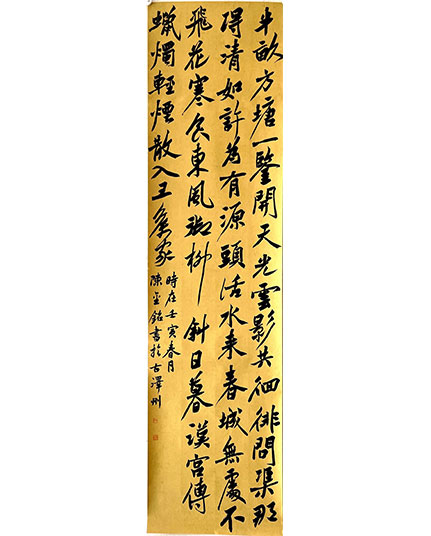 半畝方塘一鑒開天光雲影共徊徘問渠那
得清如許為有源頭活水来春城無處不
飛花寒食東風御柳斜日暮漢宮傳
蠟燭輕煙散入五侯家
時在壬寅春月
陳銘書於古澤州